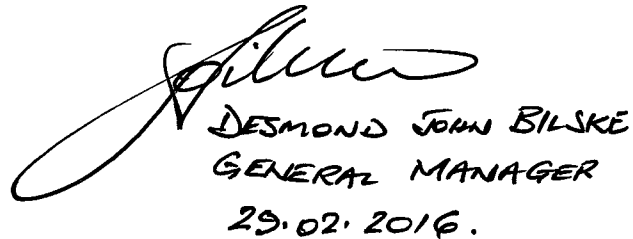 DESMOND JOHN BILSKE
GENERAL MANAGER
29.02.2016.